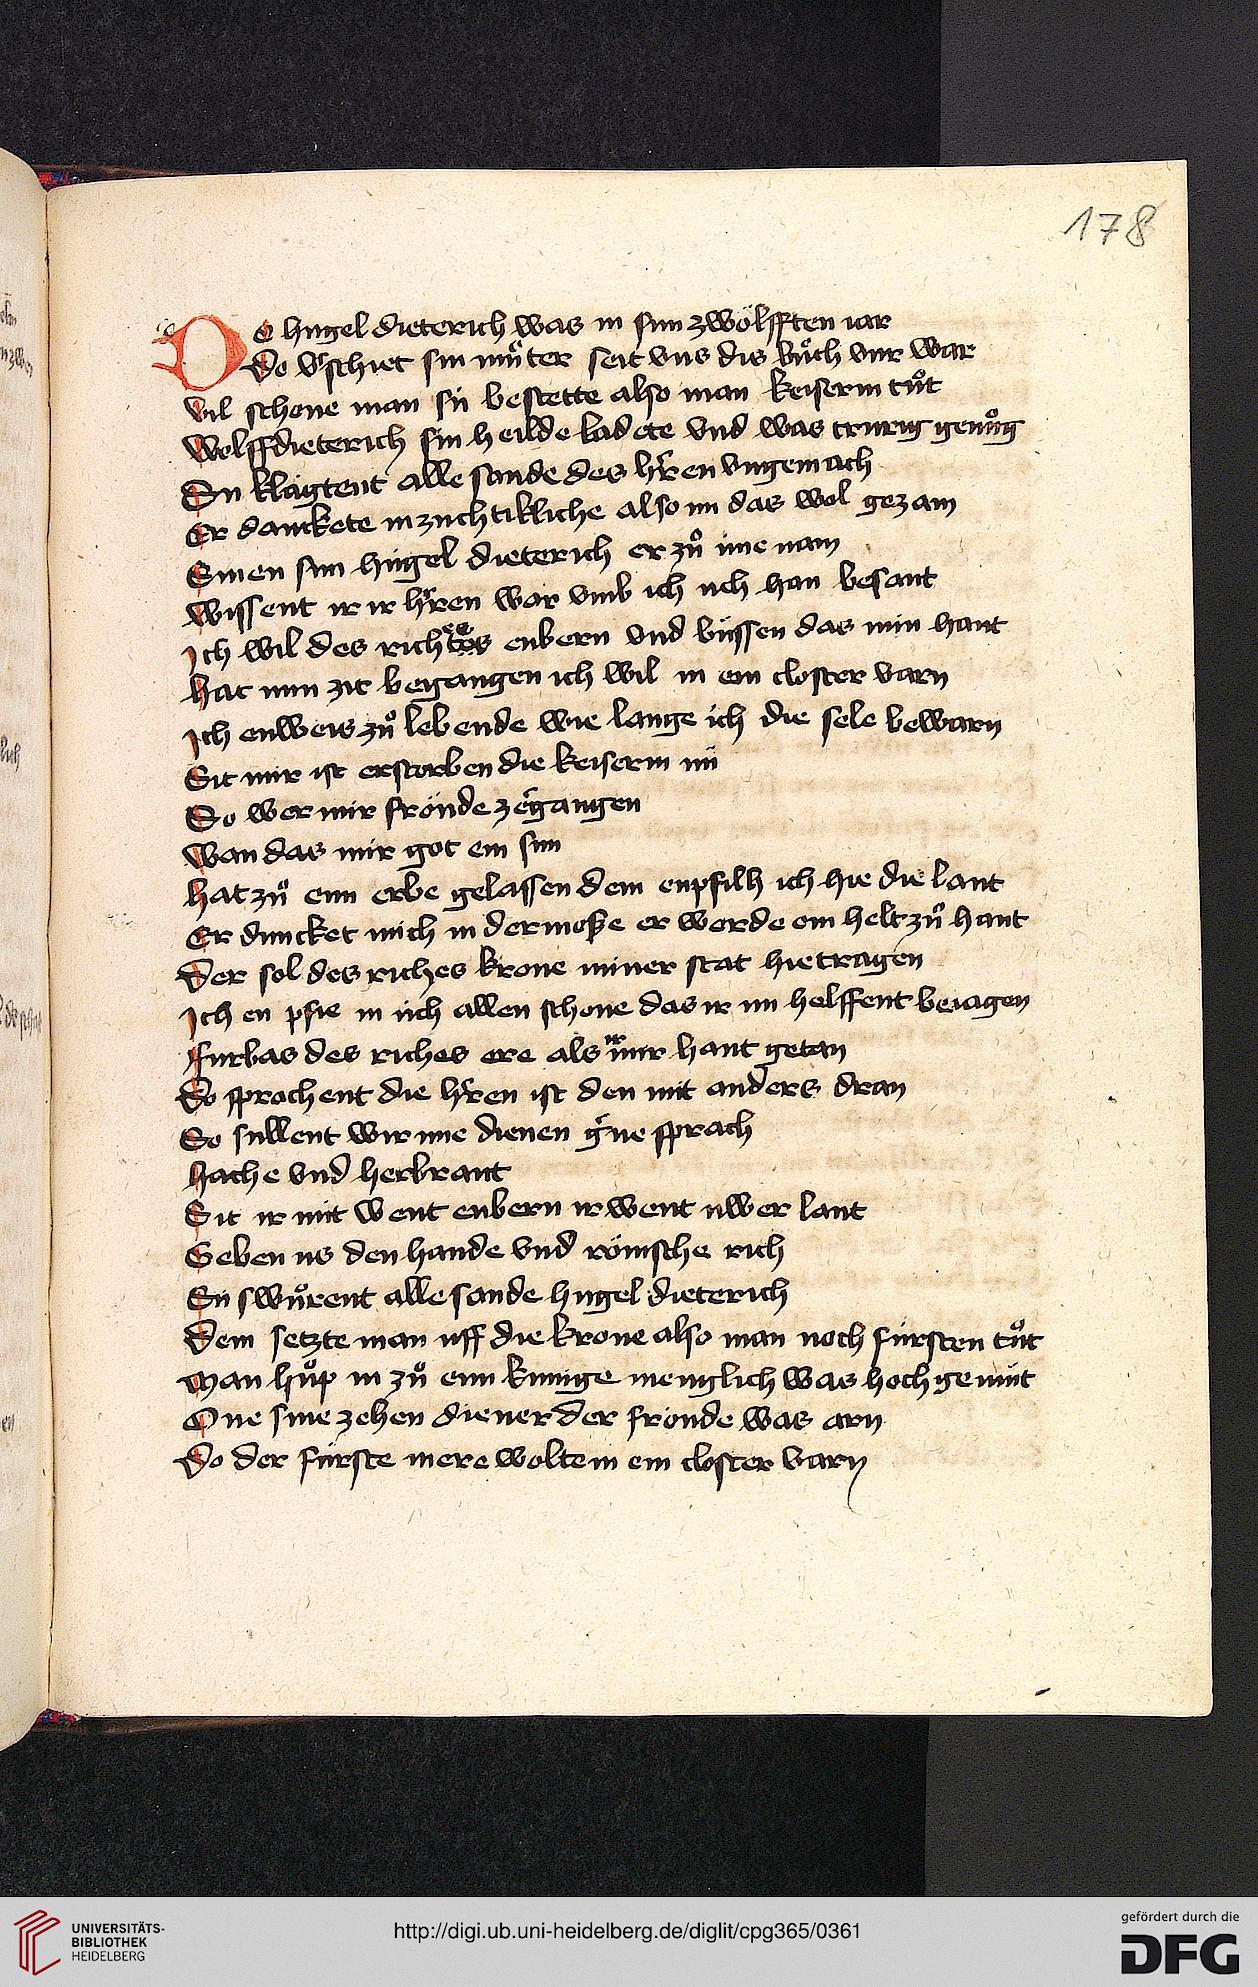 178
Do hugel dieterich was in sim zwölfften iar
Do v'schiet sin muͦter seit vns dis buͦch vúr war
Vil schone man sú bestette also man keiserin tuͦt
Wolffdieterich sin heilde ladete vnd was trurig genuͦg
Sú klagtent alle sande des h'ren vngemach
Er danckete in zuchtikliche also im das wol gezam
Sinen sun hugel dieterich er zuͦ ime nam
Wissent ir ir h'ren war vmb ich úch han besant
Ich wil des riches enbern vnd bússen das min hant
Hat min zit begangen ich wil in ein closter varn
Ich enweis zuͦ lebende wie lange ich die sele bewarn
Sit mir ist erstorben die keiserin nú
So wer mir fröude zergangen
Wan das mir got ein sun
Hat zuͦ eim erbe gelassen dem enpfilh ich hie die lant
Er duncket mich in der mosse er werde ein helt zuͦ hant
Der sol des riches krone miner stat hie tragen
Ich en pfie in úch allen schone das ir im helffent beiagen
Furbas des riches ere als ir mir hant getan
Do sprochent die h'ren ist den nút anders dran
So súllent wir ime dienen g'ne sprach
Hache vnd herbrant
Sit ir nút went enbern ir went úwer lant
Geben us den hande vnd römsche rich
Sú swuͦrent alle sande hugel dieterich
Dem setzte man uff die krone also man noch fúrsten tuͦt
Man huͦp in zuͦ eim kunige menglich was hoch gemút
One sine zehen diener der fröude was arn
Do der fúrste mere wolte in ein closter varn
UNIVERSITÄTS-
BIBLIOTHEK
HEIDELBERG
http://digi.ub.uni-heidelberg.de/diglit/cpg365/0361
gefördert durch die
DFG